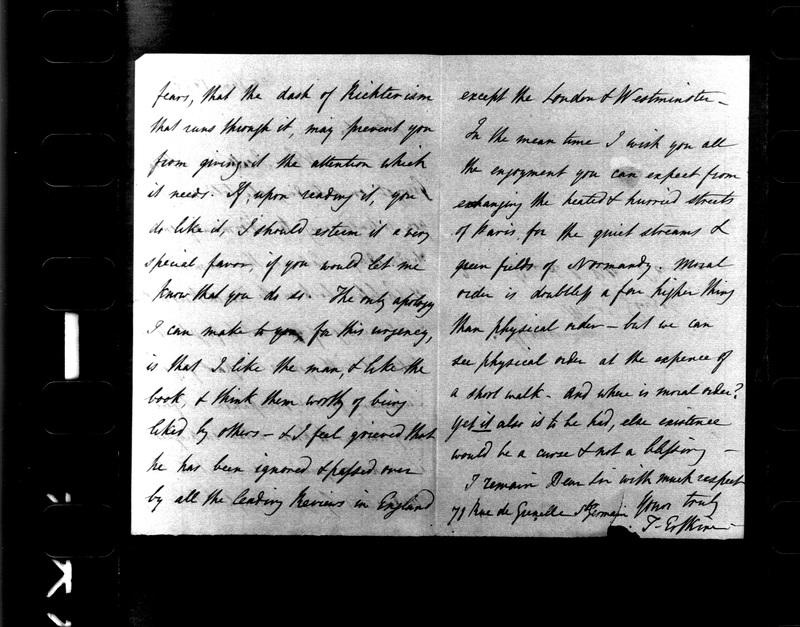 fears, that the dash of Richterism
that runs through it, may prevent you
from giving it the attention which
it needs. If, upon reading it, you
do like it, I should esteem it a very
special favor, if you would let me
know that you do so. The only apology
I can make to you, for this urgency,
is that I like the man, & like the
book, & think them worthy of being
liked by others — & I feel grieved that
he has been ignored & passed over
by all the leading Reviews in England
except the London & Westminster —
In the mean time I wish you all
the enjoyment you can expect from
exhanging the heated & hurried streets
of Paris for the quiet streams &
green fields of Normandy. Moral
order is doubtless a far higher thing
than physical order — but we can
see physical order at the expence of
a short walk. And where is moral order?
Yet it also is to be had, else existence
would be a curse & not a blessing —
I remain Dear Sir with much respect
Yours truly
73 Rue de Grenelle St Germain T. Erskine